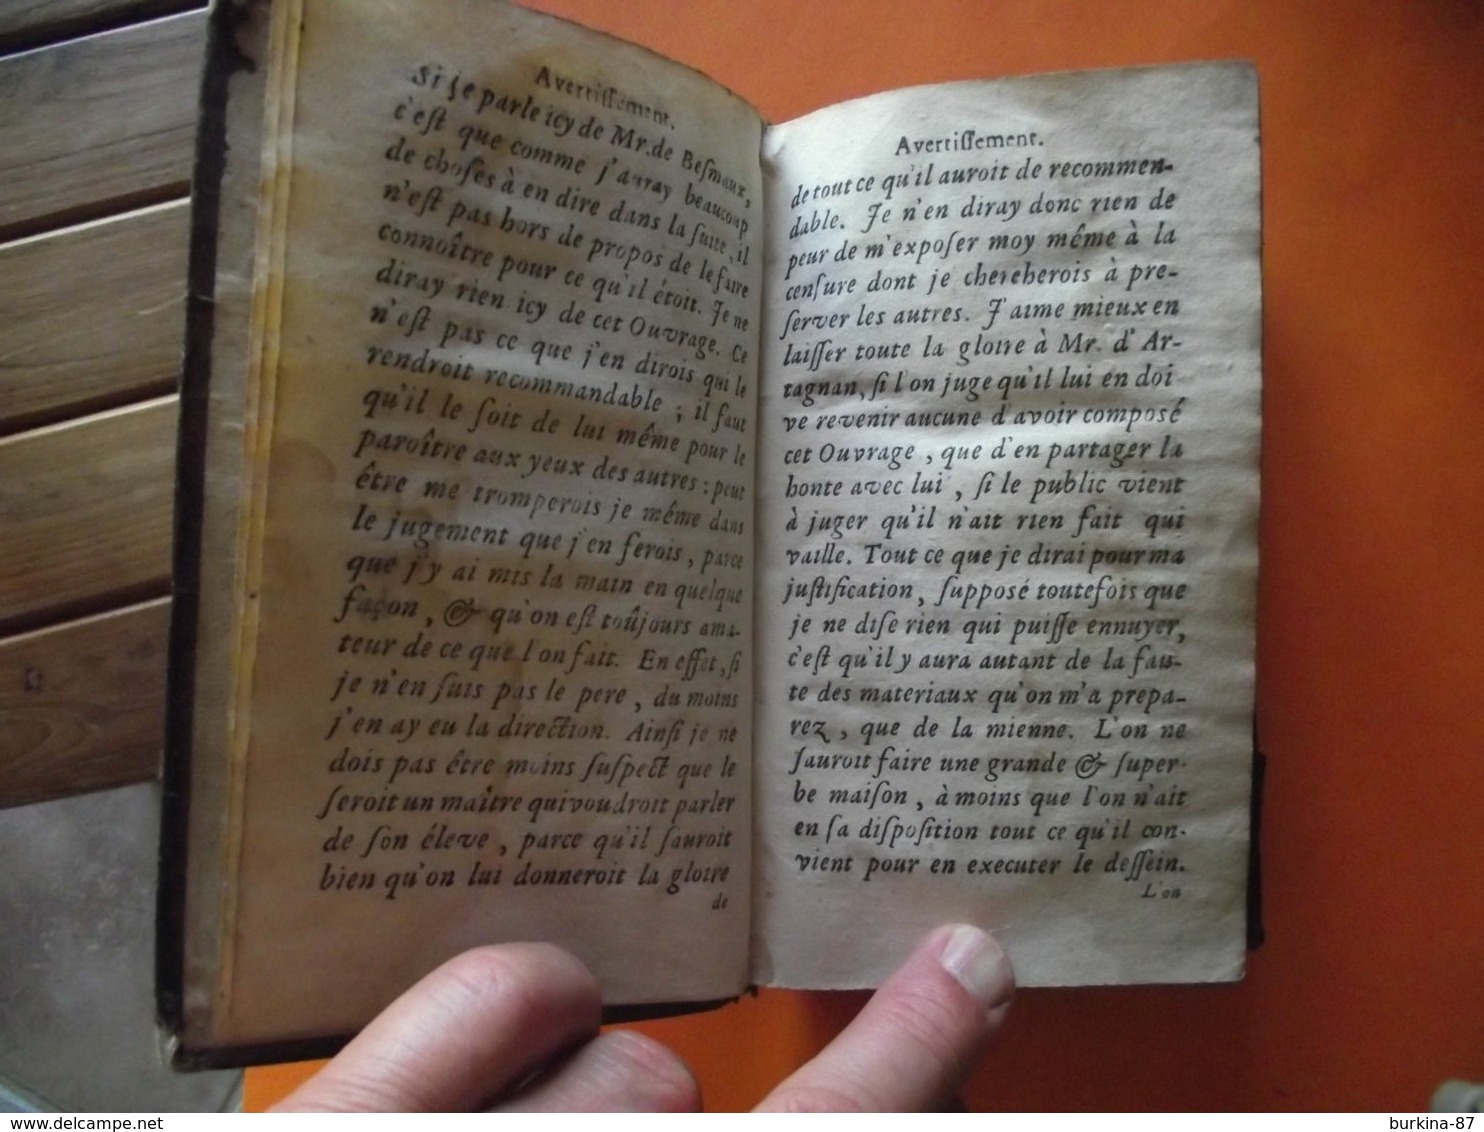 Avertiſſement.
Si je parle icy de Mr. de Beſmaux,
c'eſt que comme j'auray beaucoup
de choſes à en dire dans la ſuite, il
n'eſt pas hors de propos de le faire
connoître pour ce qu'il étoit. Je ne
diray rien icy de cet Ouvrage. Ce
n'eſt pas ce que j'en dirois qui le
rendroit recommandable ; il faut
qu'il le ſoit de lui même pour le
paroître aux yeux des autres : peut
être me tromperois je même dans
le jugement que j'en ferois, parce
que j'y ai mis la main en quelque
façon, & qu'on eſt toûjours ama-
teur de ce que l'on fait. En effet, ſi
je n'en ſuis pas le pere, du moins
j'en ay eu la direction. Ainſi je ne
dois pas être moins ſuſpect que le
ſeroit un maître qui voudroit parler
de ſon éleve, parce qu'il ſauroit
bien qu'on lui donneroit la gloire
de
Avertiſſement.
de tout ce qu'il auroit de recommen-
dable. Je n'en diray donc rien de
peur de m'expoſer moy même à la
cenſure dont je chercherois à pre-
ſerver les autres. J'aime mieux en
laiſſer toute la gloire à Mr. d'Ar-
tagnan, ſi l'on juge qu'il lui en doi
ve revenir aucune d'avoir composé
cet Ouvrage, que d'en partager la
honte avec lui, ſi le public vient
à juger qu'il n'ait rien fait qui
vaille. Tout ce que je dirai pour ma
juſtification, ſupposé toutefois que
je ne diſe rien qui puiſſe ennuyer,
c'eſt qu'il y aura autant de la fau-
te des materiaux qu'on m'a prepa-
rez, que de la mienne. L'on ne
ſauroit faire une grande & ſuper-
be maiſon, à moins que l'on n'ait
en ſa diſpoſition tout ce qu'il con-
vient pour en executer le deſſein.
L'on
burkina-87